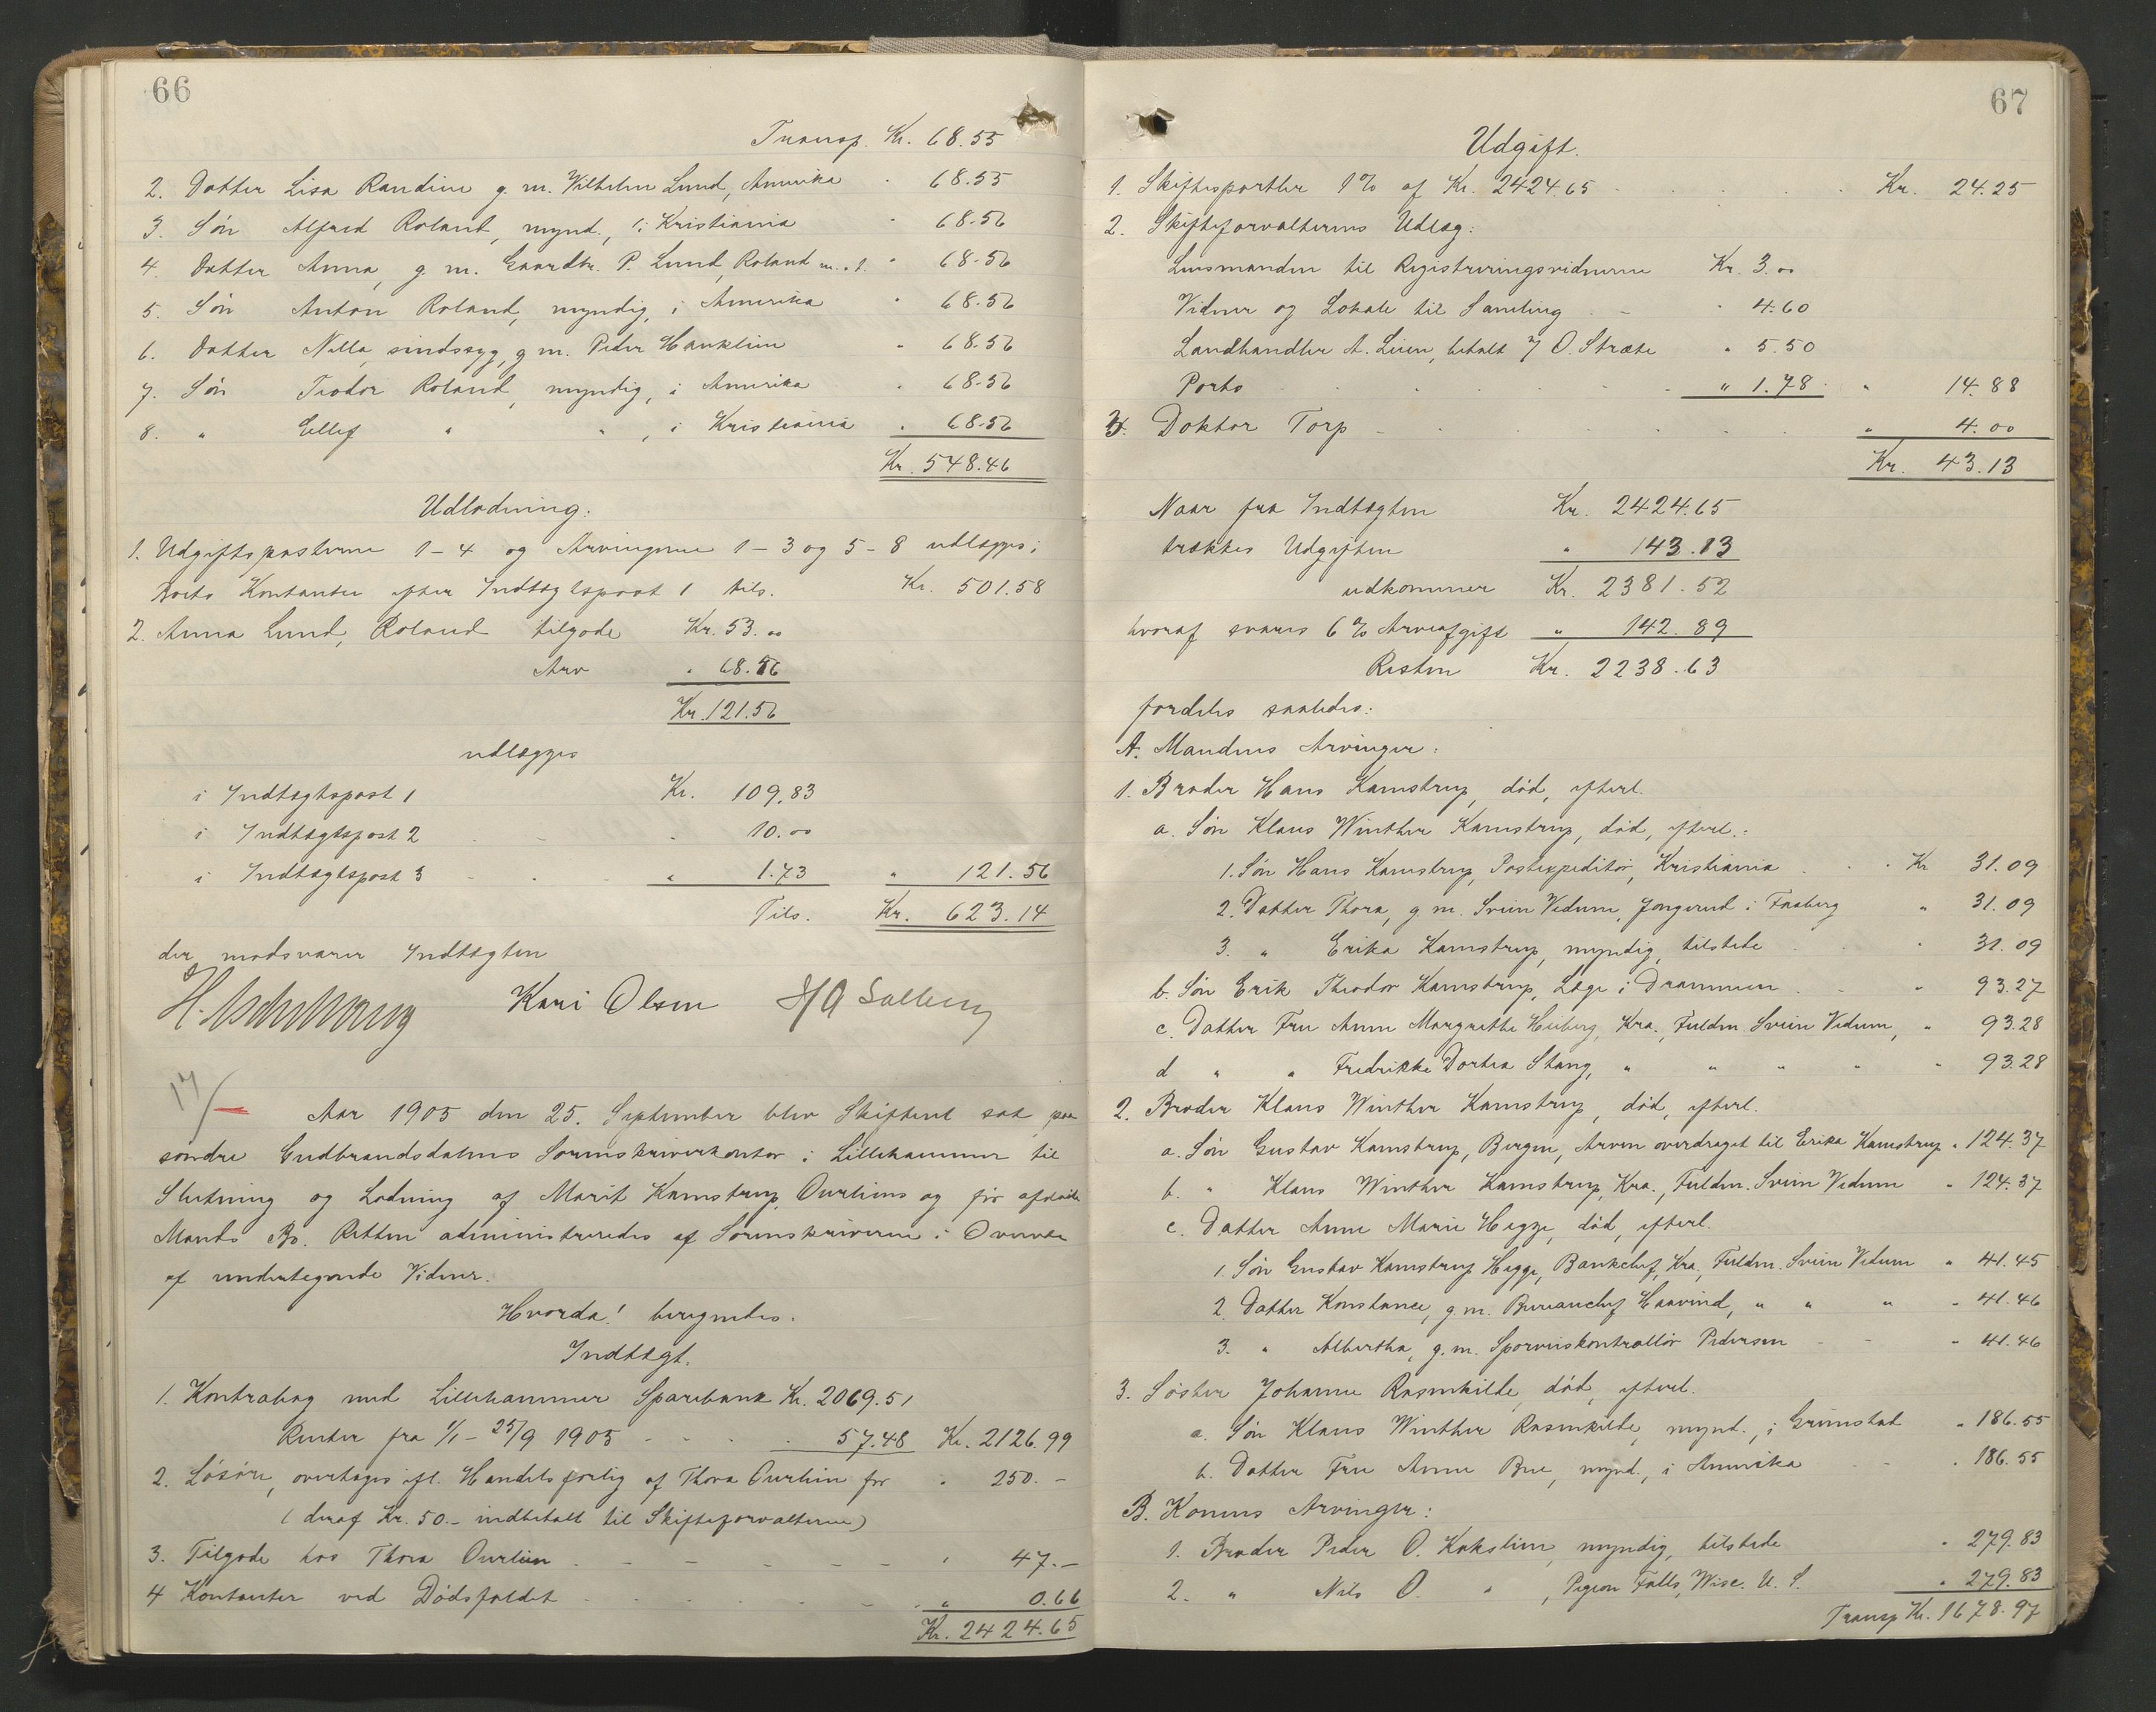 66
Transp. Kr. 68.55
2. Datter Lisa Randine g. m. Vilhelm Lund, Amerika " 68.55
3. Søn Alfred Roland, mynd., i Kristiania " 68.56
4. Datter Anna, g. m. Gaardbr. P. Lund, Roland " 68.56
5. Søn Anton Roland, myndig, i Amerika " 68.56
6. Datter Nilla, sindssyg, g. m. Peder Hauklien " 68.56
7. Søn Teodor Roland, myndig, i Amerika " 68.56
8. " Ellef " " , i Kristiania " 68.56
Kr. 548.46
Udlodning:
1. Udgiftsposterne 1-4 og Arvingerne 1-3 og 5-8 udlægges i
Boets Kontanter efter Indtægtspost 1 tils. Kr. 501.58
2. Anna Lund, Roland tilgode Kr. 53.00
Arv " 68.56
Kr. 121.56
udlægges
i Indtægtspost 1 Kr. 109.83
i Indtægtspost 2 - - 10.00
i Indtægtspost 3 - - - " 1.73 " 121.56
Tils. Kr. 623.14
der modsvarer Indtægten
Kari Olsen
17/-
Aar 1905 den 25. September blev Skifteret sat paa
søndre Gudbrandsdalens Sorenskriverkontor i Lillehammer til
Slutning og Lodning af Marit Kamstrup Ourliens og før afdøde
Mands Bo. Retten administreredes af Sorenskriveren i Overvær
af undertegnede Vidner.
Hvorda! beregnedes.
Indtægt.
1. Kontrabog med Lillehammer Sparebank Kr. 2069.51
Renter fra 1/1 - 25/9 1905 - - - - 57.48 Kr. 2126.99
2. Løsøre, overtages ifl. Handelsforlig af Thora Ourlien for " 250.-
(deraf Kr. 50.- indbetalt til Skifteforvalteren)
3. Tilgode hos Thora Ourlien - - - - - - " 47.-
4 Kontanter ved Dødsfaldet - - - - - - " 0.66
Kr. 2424.65
67
Udgift.
1. Skiftesportler 1% af Kr. 2424.65 - - - - Kr. 24.25
2. Skifteforvalterens Udlæg:
Lensmanden til Registreringsvidnerne Kr. 3.00
Vidner og Lokale til Samling - - " 4.60
Landhandler A. Lien, betalt O. Stræte " 5.50
Porto - - - - - - " 1.78 " 14.88
3. Doktor Torp - - - - - - " 4.00
Kr. 43.13
Naar fra Indtægten Kr. 2424.65
trækkes Udgiften " 143.13
udkommer Kr. 2381.52
hvoraf svares 6% Arveafgift " 142.89
Resten Kr. 2238.63
fordeles saaledes:
A. Mandens Arvinger:
1. Broder Hans Kamstrup, død, efterl.
a. Søn Klaus Winther Kamstrup, død, efterl.:
1. Søn Hans Kamstrup, Postexpeditør, Kristiania - - Kr 31.09
2. Datter Thora, g. m. Svein Vedum, Jongerud i Faaberg " 31.09
3. " Erika Kamstrup, myndig, tilstede - " 31.09
b. Søn Erik Theodor Kamstrup, Læge i Drammen - - " 93.27
c. Datter Fru Anne Margrethe Heiberg, Kra., Fuldm. Svein Vedum, " 93.28
d " " Fredrikke Dortea Stang, " " " " " 93.28
2. Broder Klaus Winther Kamstrup, død, efterl.
a. Søn Gustav Kamstrup, Bergen, Arven overdraget til Erika Kamstrup " 124.37
b. " Klaus Winther Kamstrup, Kra., Fuldm. Svein Vedum " 124.37
c. Datter Anne Marie Hegge, død, efterl.
1. Søn Gustav Kamstrup Hegge, Bankchef, Kra, Fuldm. Svein Vedum " 41.45
2. Datter Konstance, g. m. Bureauchef Haavind, " " " " 41.46
3. " Albertha, g. m. Sporveiskontrollør Pedersen - - " 41.46
3. Søster Johanne Rosenkilde, død, efterl.
a. Søn Klaus Winther Rosenkilde, mynd., i Grimstad " 186.55
b. Datter Fru Anne Bue, mynd., i Amerika - - " 186.55
B. Konens Arvinger:
1. Broder Peder O. Kokslien, myndig, tilstede " 279.83
2. " Nils O. " , Pigeon Falls, Wisc. U. S. " 279.83
Transp Kr. 1678.97